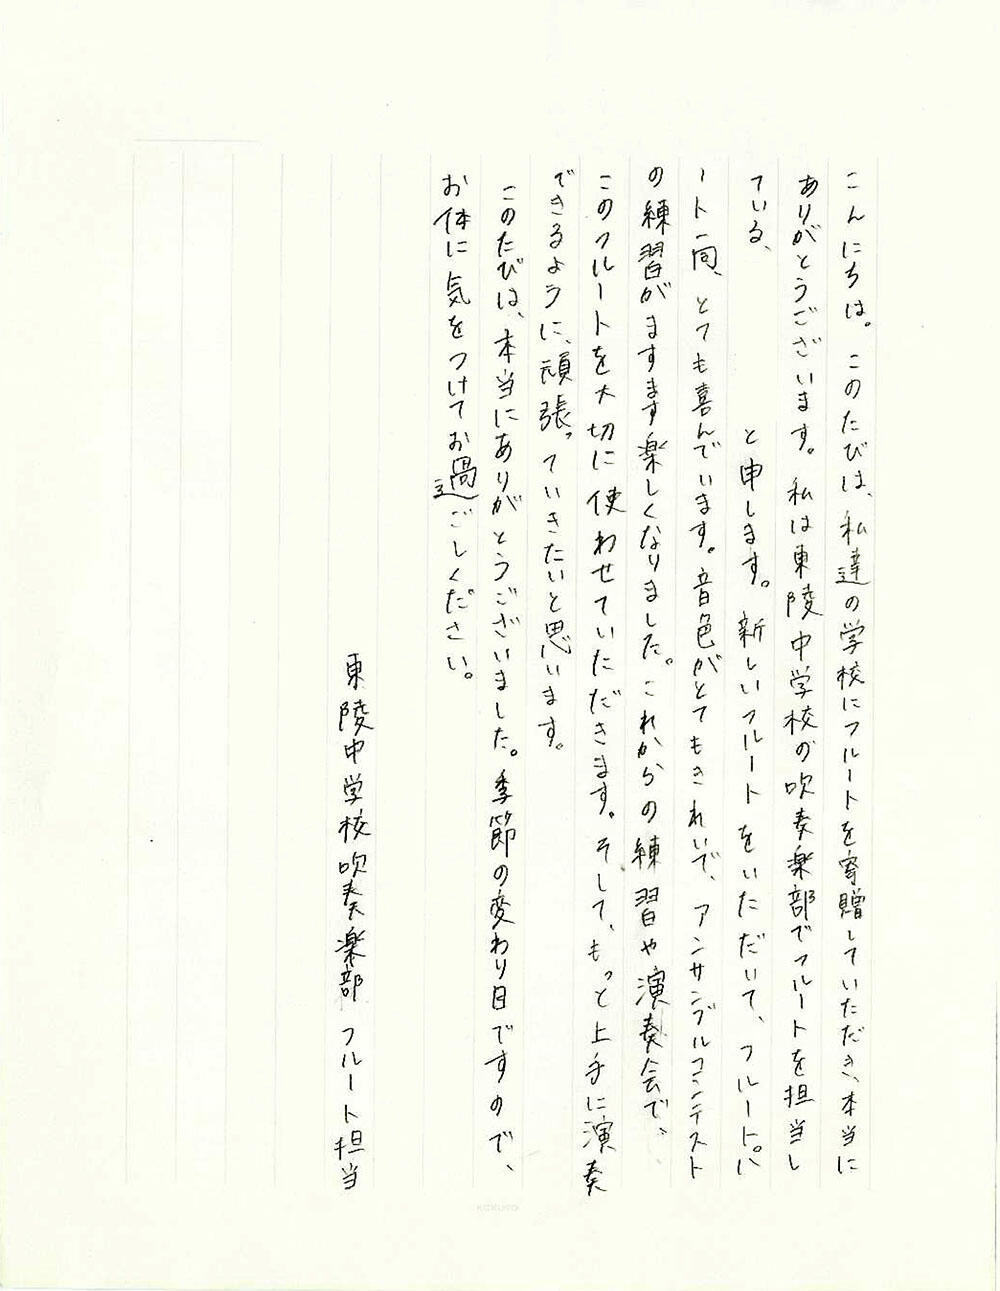 こんにちは。このたびは、私達の学校にフルートを寄贈していただき、本当に
ありがとうございます。私は東陵中学校の吹奏楽部でフルートを担当し
ている、と申します。新しいフルートをいただいて、フルートパ
ート一同、とても喜んでいます。音色がとてもきれいで、アンサンブルコンテスト
の練習がますます楽しくなりました。これからの練習や演奏会で、
このフルートを大切に使わせていただきます。そして、もっと上手に演奏
できるように、頑張っていきたいと思います。
このたびは、本当にありがとうございました。季節の変わり目ですので、
お体に気をつけてお過ごしください。
東陵中学校吹奏楽部 フルート担当
KOKUYO